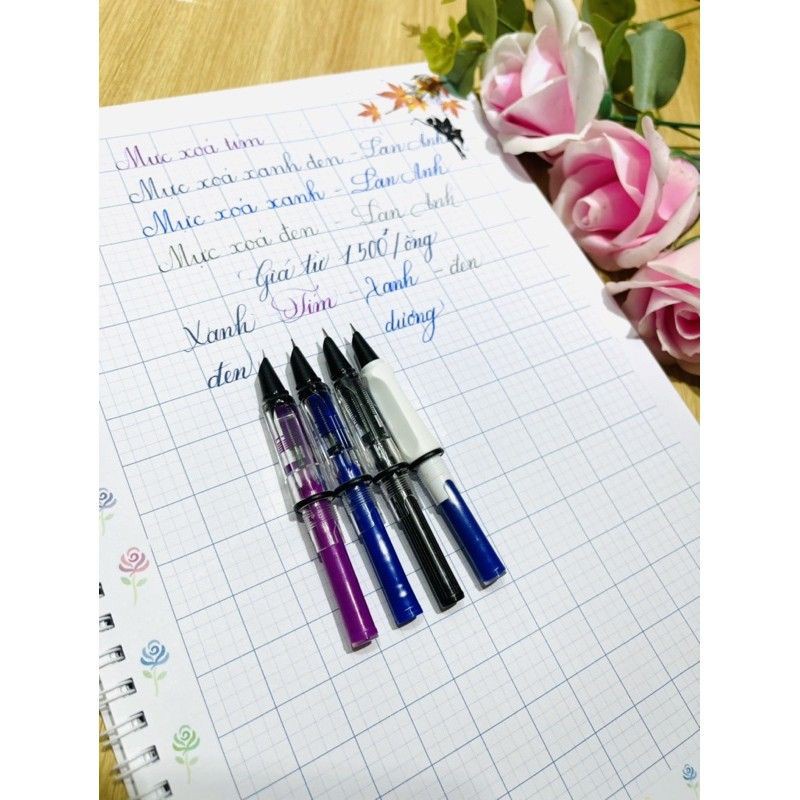 Mực xoá tím
Mực xoá xanh đen - Lan Anh
Mực xoá xanh - Lan Anh
Mực xoá đen - Lan Anh
Giá từ 1500đ/ống
Xanh Tím - Xanh - đen
đen dương